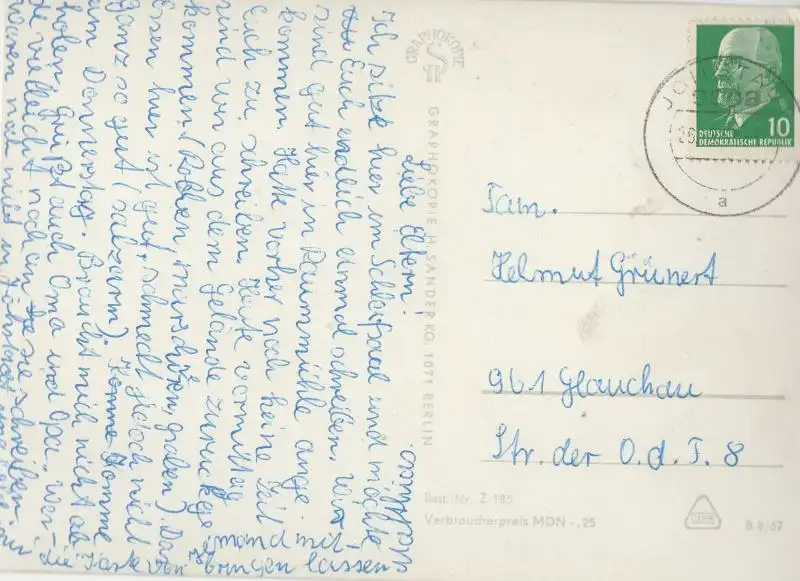 Liebe Eltern!
Ich sitze hier im Schlafsaal und möchte
Euch endlich einmal schreiben. Wir
sind gut hier in Raummühle ange-
kommen. Hatte vorher noch keine Zeit
Euch zu schreiben. Heute vormittag
sind wir aus dem Gelände zurückge-
kommen (Robben, marschieren, graben). Das
Essen hier ist gut, schmeckt jedoch nicht
ganz so gut (salzarm). Komme
am Donnerstag. Braucht mich nicht ab-
holen. Grüßt auch Oma und Opa. Wer-
de vielleicht noch an sie schreiben.
waren noch nicht in Jöhstadt
die Karte von
mand mit-
bringen lassen.
GRAPHOKOPIE
GRAPHOKOPIE H. SANDER KG, 1071 BERLIN
10
DEUTSCHE
DEMOKRATISCHE REPUBLIK
a
Fam.
Helmut Grünert
961 Glauchau
Str. der O.d.F. 8
Best. Nr. Z 185
Verbraucherpreis MDN -,25
B 8/67